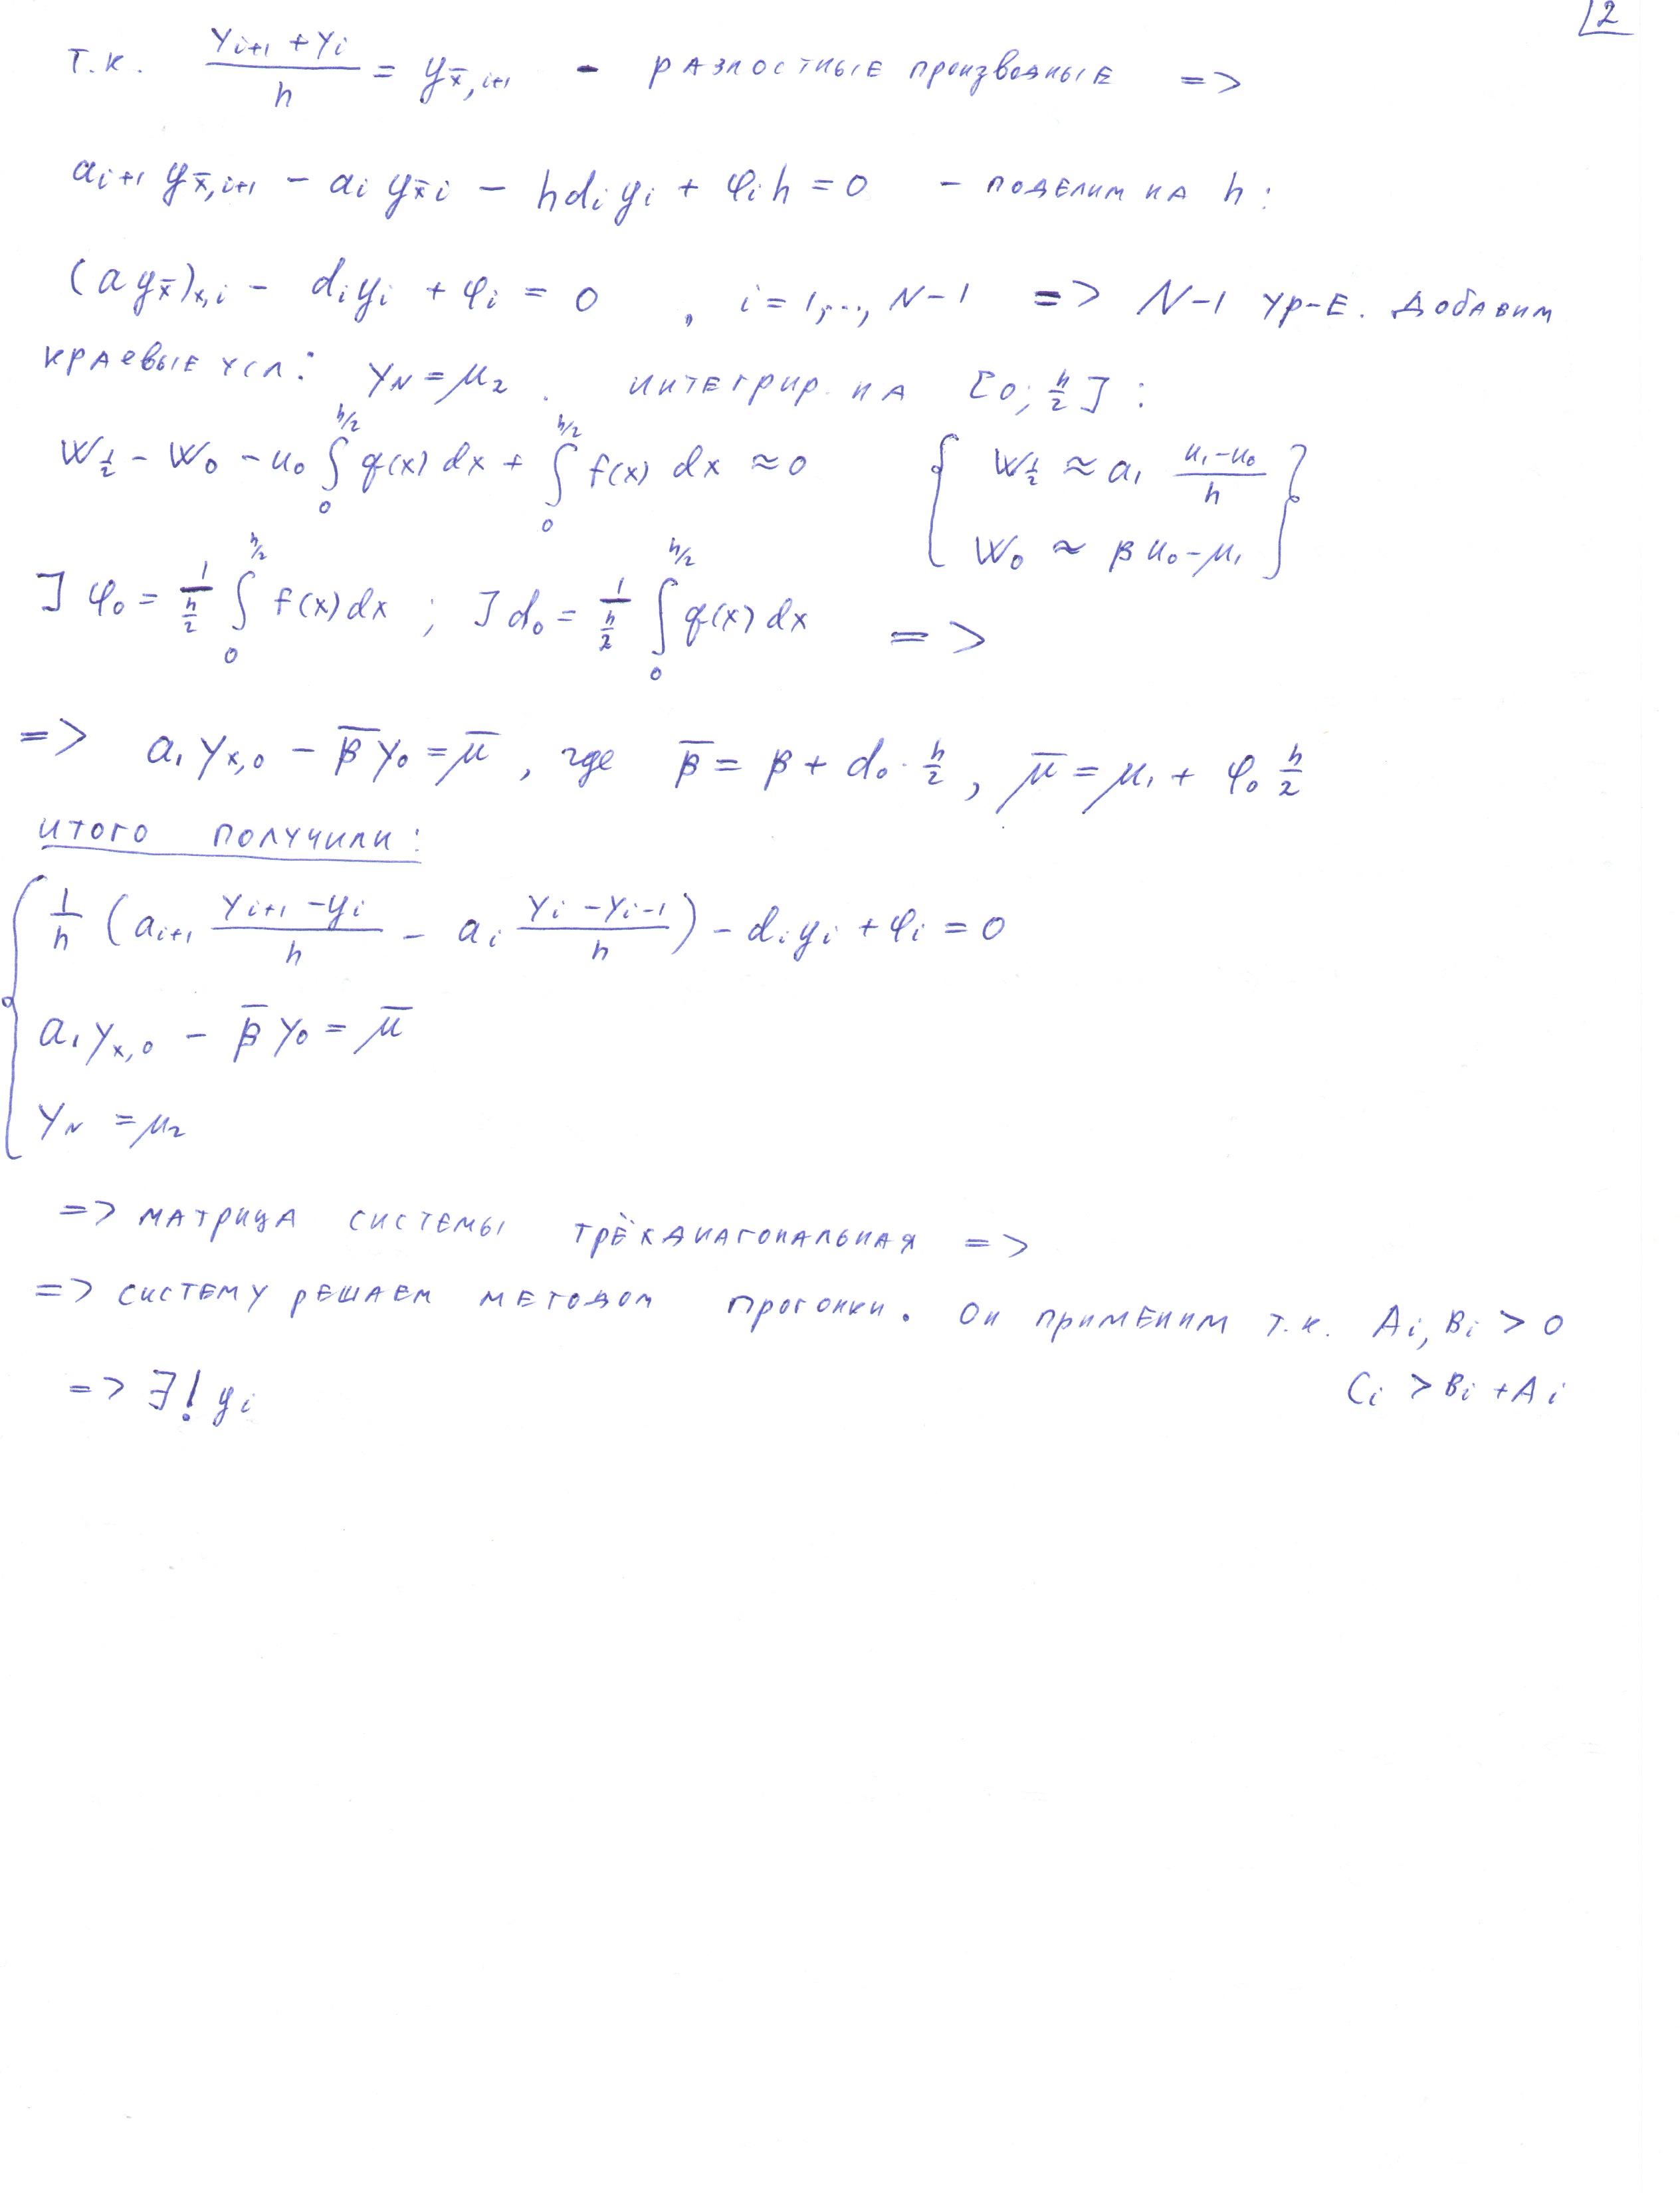 2
т.к. (y_{i+1} + y_i)/h = y_{x̄,i+1} - разностные производные =>
a_{i+1} y_{x̄,i+1} - a_i y_{x̄ i} - h d_i y_i + φ_i h = 0 - поделим на h:
(a y_{x̄})_{x,i} - d_i y_i + φ_i = 0 , i = 1,..., N-1 => N-1 ур-е. Добавим
краевые усл: y_N = μ_2 . интегрир. на [0; h/2]:
W_{1/2} - W_0 - u_0 ∫_0^{h/2} q(x) dx + ∫_0^{h/2} f(x) dx ≈ 0 { W_{1/2} ≈ a_1 (u_1 - u_0)/h
W_0 ≈ β u_0 - μ_1 }
] φ_0 = 1/(h/2) ∫_0^{h/2} f(x) dx ; ] d_0 = 1/(h/2) ∫_0^{h/2} q(x) dx =>
=> a_1 y_{x,0} - β̄ y_0 = μ̄ , где β̄ = β + d_0 · h/2 , μ̄ = μ_1 + φ_0 h/2
итого получили:
{ 1/h (a_{i+1} (y_{i+1} - y_i)/h - a_i (y_i - y_{i-1})/h) - d_i y_i + φ_i = 0
a_1 y_{x,0} - β̄ y_0 = μ̄
y_N = μ_2
=> матрица системы трёхдиагональная =>
=> систему решаем методом прогонки. Он применим т.к. A_i, B_i > 0
C_i > B_i + A_i
=> ∃! y_i